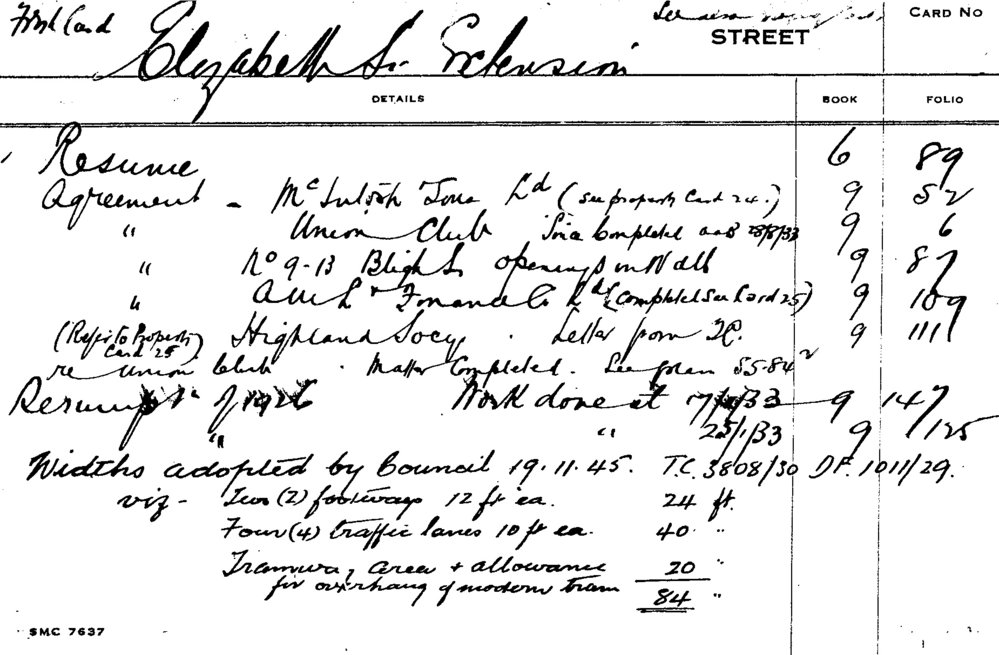 First Card
See also
CARD NO
STREET
Elizabeth St. Extension
DETAILS BOOK FOLIO
Resume 6 89
Agreement - McIntosh Sons Ld (See property Card 24.) 9 52
" Union Club completed 9 6
" No 9-13 Bligh St openings in Wall 9 87
" Finance Co Ld (completed See Card 25) 9 109
(Refer to Property Card 25) Highland Socy. Letter from 9 111
re Union Club . Matter Completed. See plan S5-84²
of 1926 Work done at 33 9 147
" " 25/1/33 9 125
Widths adopted by Council 19.11.45. T.C. 3808/30 D.F. 1011/29.
viz - Two (2) footways 12 ft ea. 24 ft.
Four (4) traffic lanes 10 ft ea. 40 "
Tramway area & allowance 20 "
for overhang of modern tram
84 "
SMC 7637